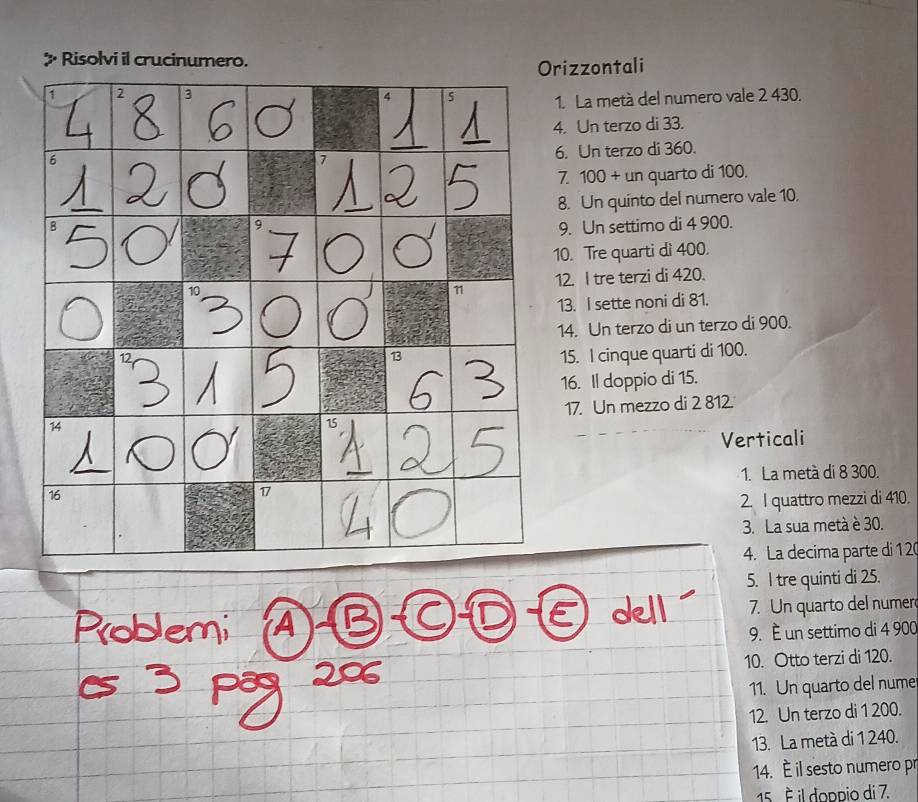 Risolvi il crucinumero.
1 4 2 8 3 6 0 4 1 5 1
6 1 2 0 7 1 2 5
8 5 0 9 7 0 0
0 10 3 0 0 11
12 3 1 5 13 6 3
14 1 0 0 15 1 2 5
16 17 4 0
Orizzontali
1. La metà del numero vale 2 430.
4. Un terzo di 33.
6. Un terzo di 360.
7. 100 + un quarto di 100.
8. Un quinto del numero vale 10.
9. Un settimo di 4 900.
10. Tre quarti di 400.
12. I tre terzi di 420.
13. I sette noni di 81.
14. Un terzo di un terzo di 900.
15. I cinque quarti di 100.
16. Il doppio di 15.
17. Un mezzo di 2 812.
Verticali
1. La metà di 8 300.
2. I quattro mezzi di 410.
3. La sua metà è 30.
4. La decima parte di 120
5. I tre quinti di 25.
7. Un quarto del numer
9. È un settimo di 4 900
10. Otto terzi di 120.
11. Un quarto del nume
12. Un terzo di 1 200.
13. La metà di 1 240.
14. È il sesto numero pr
15. È il doppio di 7.
Problemi A-B-C-D-E dell'
es 3 pag 206